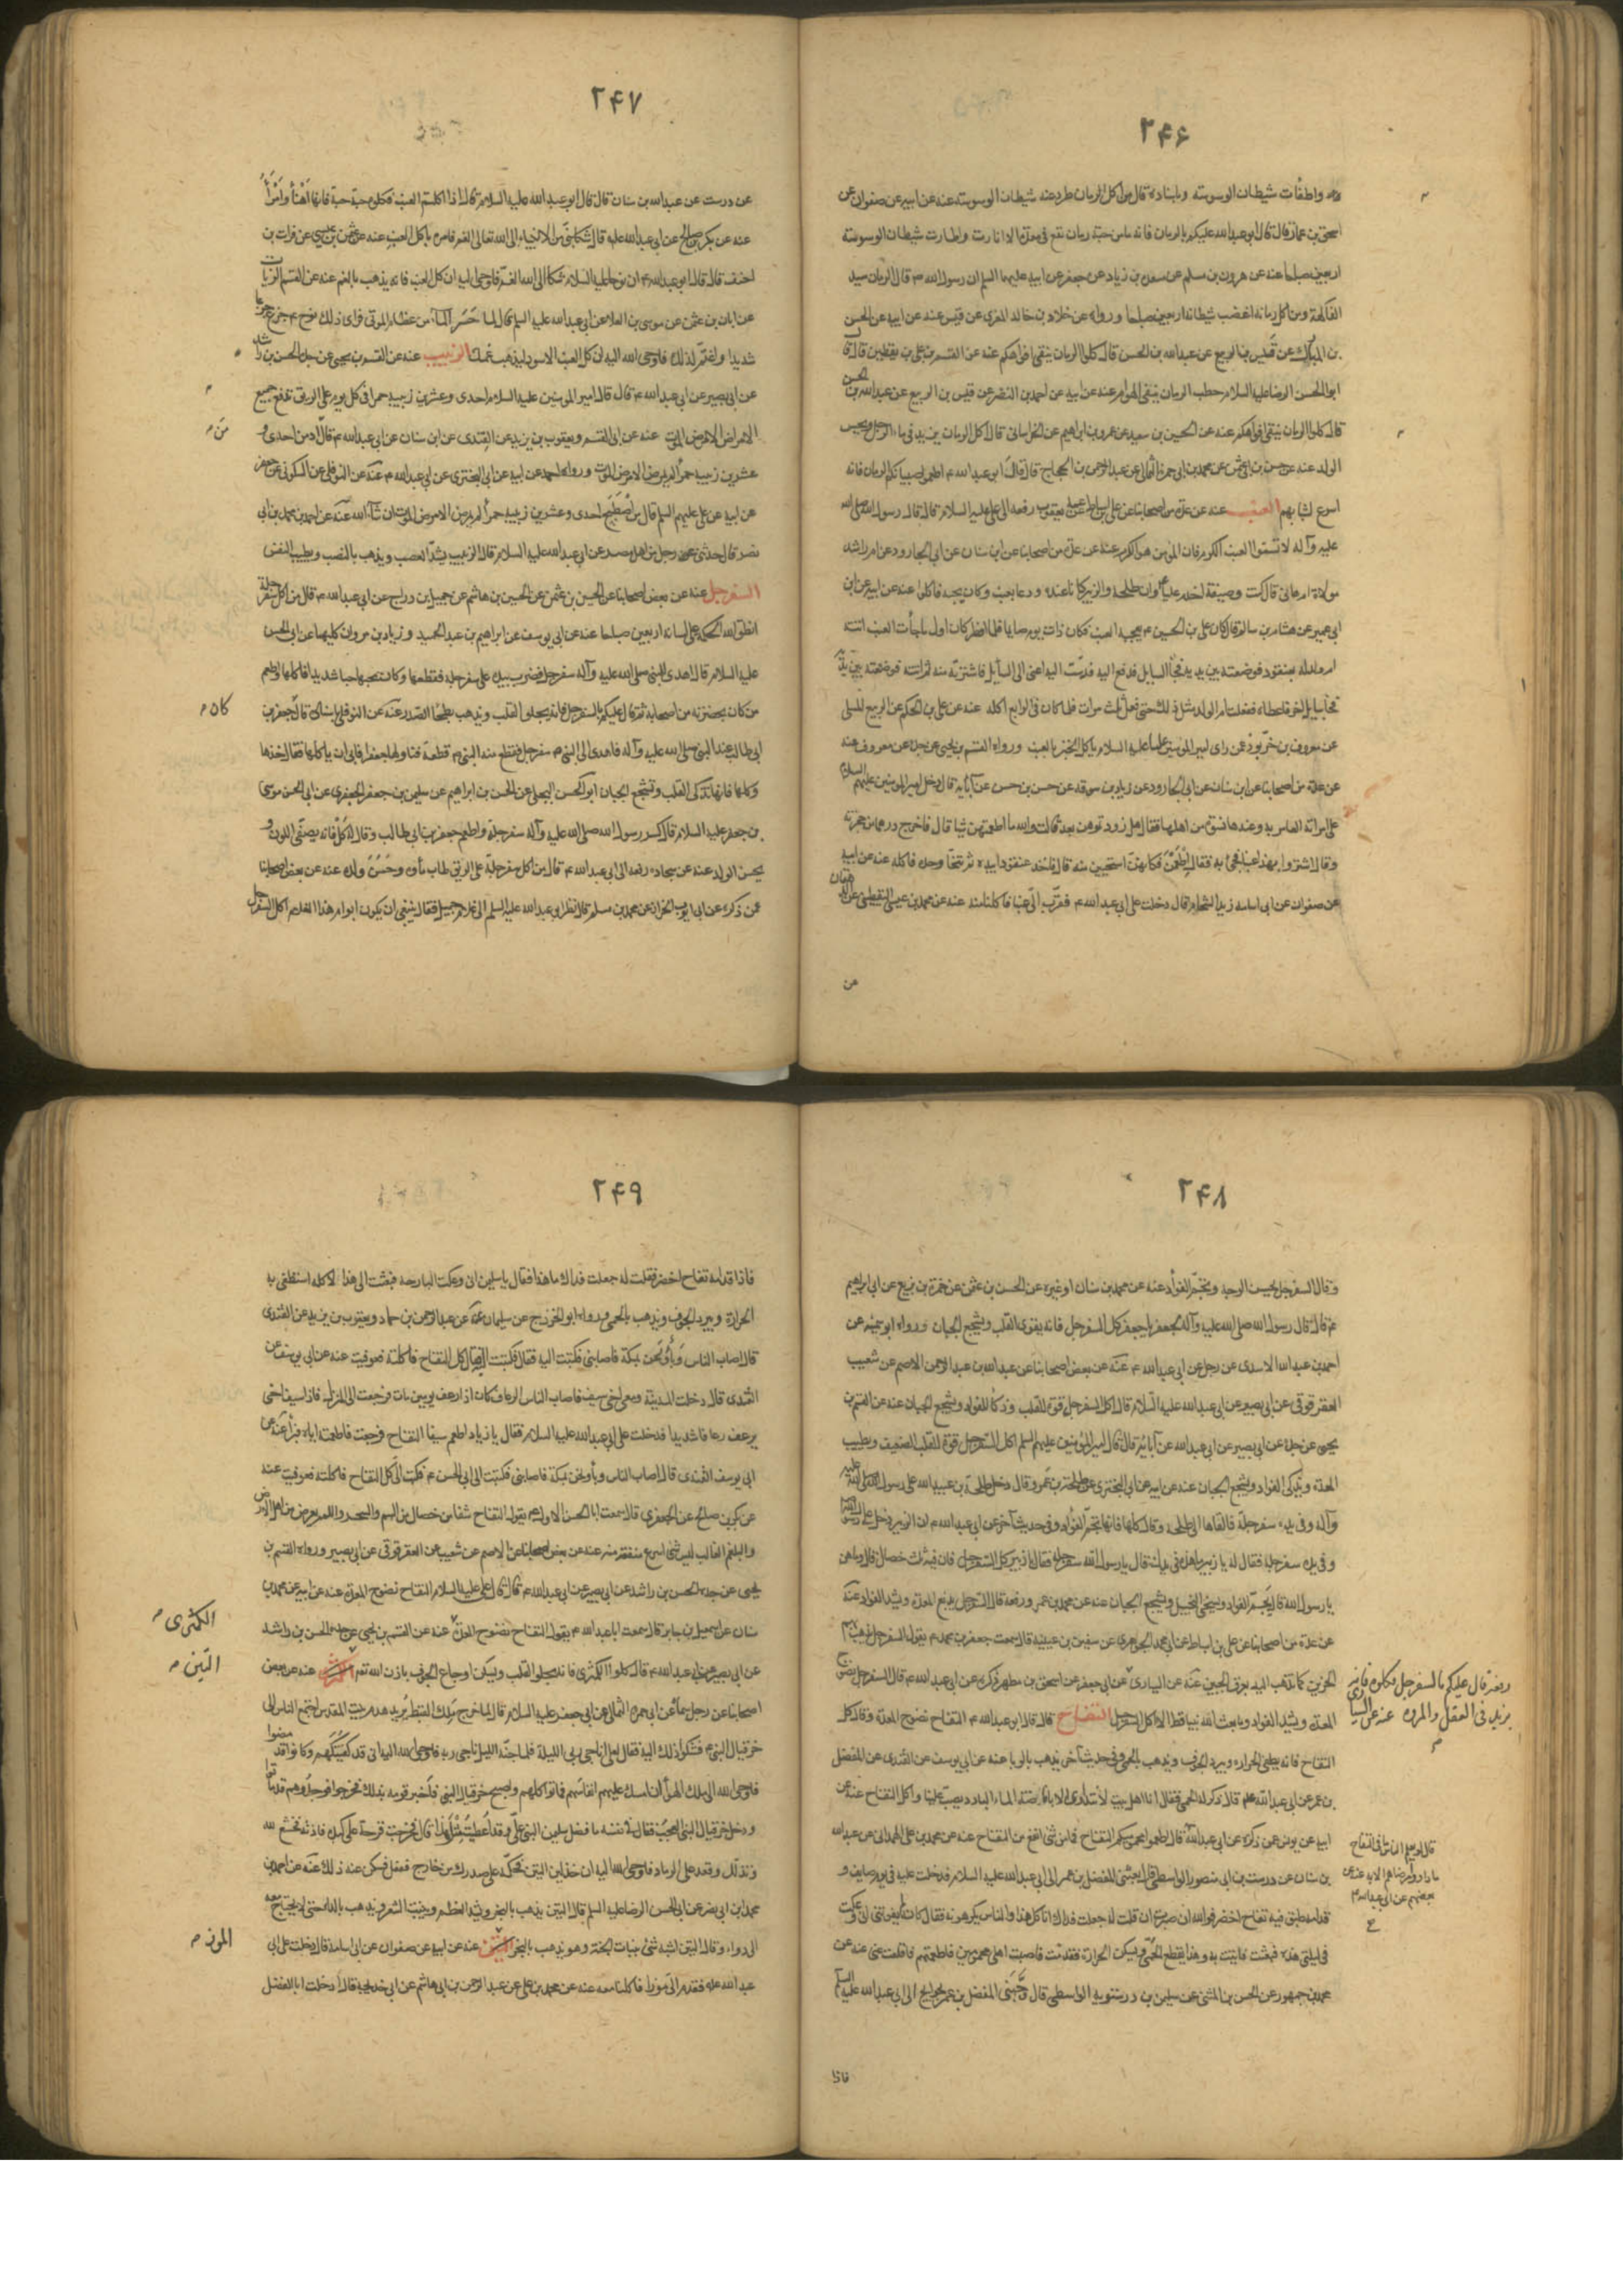 ۲۴۶
واطفأت شيطان الوسوسة وباسناده قال من اكل الرمان طرد عنه شيطان الوسوسة عنه عن ابيه عن صفوان عن
اسحق بن عمار قال قال ابو عبد الله عليكم بالرمان فانه ما من حبة رمان تقع فى معدة الا انارت واطارت شيطان الوسوسة
اربعين صباحا عنه عن هرون بن مسلم عن مسعدة بن زياد عن جعفر عن ابيه عليهما السلم ان رسول الله قال الرمان سيد
الفاكهة ومن اكل رمانة اغضب شيطانه اربعين صباحا ورواه عن خلاد بن خالد المقرى عن قيس عنه عن ابيه عن الحسن
بن المبارك عن قيس بن الربيع عن عبد الله بن الحسن قال كلوا الرمان ينقى افواهكم عنه عن القسم بن على بن يقطين قال قال
ابو الحسن الرضا عليه السلام حطب الرمان ينفى الهوام عنه عن ابيه عن احمد بن النضر عن قيس بن الربيع عن عبد الله بن الحسن
قال كلوا الرمان ينقى افواهكم عنه عن الحسين بن سعيد عن عمرو بن ابراهيم عن الخراسانى قال اكل الرمان يزيد فى ماء الرجل ويحسن
الولد عنه عن حسن بن ابى عثمن عن محمد بن ابى حمزة عن عبد الرحمن بن الحجاج قال قال ابو عبد الله اطعموا صبيانكم الرمان فانه
اسرع لشبابهم العنب عنه عن عدة من اصحابنا عن على بن اسباط عن يعقوب رفعه الى على عليه السلام قال قال رسول الله صلى الله
عليه وآله لا تسموا العنب الكرم فان المؤمن هو الكرم عنه عن عدة من اصحابنا عن ابن سنان عن ابى الجارود عن ام راشد
مولاة ام هانى قالت كنت وصيفة اخدم عليا وان طلحة والزبير كانا عنده ودعا بعنب وكان يحبه فاكلوا عنه عن ابيه عن ابن
ابى عمير عن هشام بن سالم قال كان على بن الحسين يعجبه العنب فكان ذات يوم صايما فلما افطر كان اول ما جاءت العنب اتته
ام ولد له بعنقود فوضعته بين يديه فجاء السايل فدفع اليه فدست اليه اعنى الى السايل فاشترته منه ثم اتته فوضعته بين يديه
فجاء سايل آخر فاعطاه ففعلت ام الولد مثل ذلك حتى فعل ثلث مرات فلما كان فى الرابع اكله عنه عن على بن الحكم عن الربيع المسلى
عن معروف بن خربوذ عمن راى امير المؤمنين عليه السلام ياكل الخبز بالعنب ورواه القسم بن يحيى عن جده عن معروف عنه
عن عدة من اصحابنا عن ابن سنان عن ابى الجارود عن زياد بن سوقه عن حسن بن حسن عن آبائه قال دخل امير المؤمنين عليه السلام
على امراته العامرية وعندها نسوة من اهلها فقال هل زودتموهن بعد قالت والله ما اطعمتهن شيا قال فاخرج درهما من حجزته
وقال اشتروا بهذا عنبا فجئ به فقال اطعمن فكانهن استحيين منه قال فاخذ عنقودا بيده ثم تنحى وحده فاكله عنه عن ابيه
عن صفوان عن ابى اسامه زيد الشحام قال دخلت على ابى عبد الله فقرب الى عنبا فاكلنا منه عنه عن محمد بن عيسى اليقطينى عن الدهقان
عن
۲۴۷
عن درست عن عبد الله بن سنان قال قال ابو عبد الله عليه السلام قال اذا اكلتم العنب فكلوه حبة حبة فانها اهنأ وامرأ
عنه عن بكر بن صالح عن ابى عبد الله عليه قال شكا نبى من الانبياء الى الله تعالى الغم فامره باكل العنب عنه عن عثمن بن عيسى عن فرات بن
احنف قال قال ابو عبد الله ان نوحا عليه السلام شكا الى الله الغم فاوحى اليه ان كل العنب فانه يذهب بالغم عنه عن القسم الزيات
عن ابان بن عثمن عن موسى بن العلا عن ابى عبد الله عليه السلم قال لما حسر الماء عن عظام الموتى فراى ذلك نوح جزع جزعا
شديدا واغتم لذلك فاوحى الله اليه ان كل العنب الاسود ليذهب غمك الزبيب عنه عن القسم بن يحيى عن جده الحسن بن راشد
عن ابى بصير عن ابى عبد الله قال قال امير المؤمنين عليه السلام احدى وعشرين زبيبة حمرا فى كل يوم على الريق تدفع جميع
الامراض الا مرض الموت عنه عن ابى القسم ويعقوب بن يزيد عن القندى عن ابن سنان عن ابى عبد الله قال ادمن احدى و
عشرين زبيبه حمرأ لم يمرض الا مرض الموت ورواه احمد عن ابيه عن ابى البخترى عن ابى عبد الله عنه عن النوفلى عن السكونى عن جعفر
عن ابيه عن على عليهم السلم قال من اصطبح احدى وعشرين زبيبة حمرأ لم يمرض الا مرض الموت ان شآء الله عنه عن احمد بن محمد بن ابى
نصر قال حدثنى رجل من اهل مصر عن ابى عبد الله عليه السلام قال الزبيب يشد العصب ويذهب بالنصب ويطيب النفس
السفرجل عنه عن بعض اصحابنا عن الحسين بن عثمن عن الحسين بن هاشم عن جميل بن دراج عن ابى عبد الله قال من اكل سفرجلة
انطق الله الحكمة على لسانه اربعين صباحا عنه عن ابى يوسف عن ابراهيم بن عبد الحميد وزياد بن مروان كليهما عن ابى الحسن
عليه السلام قال اهدى للنبى صلى الله عليه وآله سفرجل فضرب بيده على سفرجله فقطعها وكان يحبها حبا شديدا فاكلها واطعم
من كان بحضرته من اصحابه ثم قال عليكم بالسفرجل فانه يجلو القلب ويذهب بطخاء الصدر عنه عن النوفلى باسناده قال جعفر بن
كان
ابى طالب عند النبى صلى الله عليه وآله فاهدى الى النبى سفرجل فقطع منه النبى قطعة فناولها جعفرا فابى ان ياكلها فقال خذها
وكلها فانها تذكى القلب وتشجع الجبان ابو الحسن البجلى عن الحسن بن ابراهيم عن سليمن بن جعفر الجعفرى عن ابى الحسن موسى
بن جعفر عليه السلام قال كسر رسول الله صلى الله عليه وآله سفرجلة واطعم جعفر بن ابى طالب وقال له كل فانه يصفى اللون و
يحسن الولد عنه عن سجادة رفعه الى ابى عبد الله قال من اكل سفرجلة على الريق طاب ماؤه وحسن ولده عنه عن بعض اصحابنا
عمن ذكره عن ابى ايوب الخزاز عن محمد بن مسلم قال نظر ابو عبد الله عليه السلم الى غلام جميل فقال ينبغى ان يكون ابوا هذا الغلام اكل السفرجل
۲۴۸
وقال السفرجل يحسن الوجه ويجم الفؤاد عنه عن محمد بن سنان او غيره عن الحسن بن عثمن عن حمزة بن بزيع عن ابى ابراهيم
قال قال رسول الله صلى الله عليه وآله لجعفر يا جعفر كل السفرجل فانه يقوى القلب ويشجع الجبان ورواه ابو سمينه عن
احمد بن عبد الله الاسدى عن رجل عن ابى عبد الله عنه عن بعض اصحابنا عن عبد الله بن عبد الرحمن الاصم عن شعيب
العقرقوفى عن ابى بصير عن ابى عبد الله عليه السلام قال اكل السفرجل قوة للقلب وذكاء للفواد ويشجع الجبان عنه عن القسم بن
يحيى عن جده عن ابى بصير عن ابى عبد الله عن آبائه قال قال امير المؤمنين عليهم السلم اكل السفرجل قوة للقلب الضعيف ويطيب
المعدة ويذكى الفواد ويشجع الجبان عنه عن ابيه عن ابى البخترى عن طلحة بن عمرو قال دخل طلحة بن عبيد الله على رسول الله صلى الله عليه
وآله وفى يده سفرجلة فالقاها الى طلحة وقال كلها فانها تجم الفؤاد وفى حديث آخر عن ابى عبد الله ان الزبير دخل على رسول الله
وفى يده سفرجلة فقال له يا زبير ما هذه فى يدك قال يا رسول الله سفرجلة فقال يا زبير كل السفرجل فان فيه ثلث خصال قال وما هن
يا رسول الله قال يجم الفواد ويسخى البخيل ويشجع الجبان عنه عن محمد بن عمر ورفعه قال السفرجل يدبغ المعدة ويشد الفواد عنه
عن عدة من اصحابنا عن على بن اسباط عن ابى محمد الجوهرى عن سفين بن عيينة قال سمعت جعفر بن محمد يقول السفرجل يذهب بهم
الحزين كما تذهب اليد بعرق الجبين عنه عن السيارى عن ابى جعفر عن اسحق بن مطهر ذكره عن ابى عبد الله قال السفرجل يفرج
المعدة ويشد الفواد وما بعث الله نبيا قط الا اكل السفرجل التفاح قال قال ابو عبد الله التفاح نضوح المعدة وقال كل
التفاح فانه يطفى الحرارة ويبرد الجوف ويذهب بالحمى وفى حديث آخر يذهب بالوبا عنه عن ابى يوسف عن القندى عن المفضل
بن عمر عن ابى عبد الله قال ذكر له الحمى فقال انا اهل بيت لا نتداوى الا بافاضة الماء البارد يصب علينا واكل التفاح عنه عن
ابيه عن يونس عمن ذكره عن ابى عبد الله قال اطعموا محموميكم التفاح فما من شئ انفع من التفاح عنه عن محمد بن على الهمدانى عن عبد الله
بن سنان عن درست بن ابى منصور الواسطى قال بعثنى المفضل بن عمر الى ابى عبد الله عليه السلام فدخلت عليه فى يوم صايف و
قدامه طبق فيه تفاح اخضر فوالله ان صبرت ان قلت له جعلت فداك اتاكل هذا والناس يكرهونه فقال كانه لم يعرفنى انى وعكت
فى ليلتى هذه فبعثت فاتيت به وهذا يقطع الحمى ويسكن الحرارة فقدمت فاصبت اهلى محمومين فاطعمتهم فاقلعت عنى عنه عن
محمد بن جمهور عن الحسن بن المثنى عن سليمن بن درستويه الواسطى قال وجهنى المفضل بن عمر بحوايج الى ابى عبد الله عليه السلم
رفعه قال عليكم بالسفرجل فكلوه فانه
يزيد فى العقل والمروة عنه عن السيارى
قال لو يعلم الناس ما فى التفاح
ما داووا مرضاهم الا به عنه عن
بعضهم عن ابى عبد الله
فاذا
۲۴۹
فاذا قدامه تفاح اخضر فقلت له جعلت فداك ما هذا فقال يا سليمن انى وعكت البارحه فبعثت الى هذا لاكله استطفى به
الحرارة ويبرد الجوف ويذهب بالحمى ورواه ابو الخزرج عن سليمان عنه عن عبد الرحمن بن حماد ويعقوب بن يزيد عن القندى
قال اصاب الناس وباؤ ونحن بمكة فاصابنى فكتبت اليه فقال فكتبت الى كل التفاح فاكلته فعوفيت عنه عن ابى يوسف عن
القندى قال دخلت المدينة ومعى اخى سيف فاصاب الناس الرعاف وكان اذا رعف يومين مات فرجعت الى المنزل فاذا سيف اخى
يرعف رعافا شديدا فدخلت على ابى عبد الله عليه السلام فقال يا زياد اطعم سيفا التفاح فرجعت فاطعمته اياه فبرأ عنه عن
ابى يوسف القندى قال اصاب الناس وبأ ونحن بمكة فاصابنى فكتبت الى ابى الحسن فكتب الى كل التفاح فاكلته فعوفيت عنه
عن بكر بن صالح عن الجعفرى قال سمعت ابا الحسن الاول يقول التفاح شفا من خصال من السم والسحر واللمم يعرض من اهل الارض
والبلغم الغالب ليس شئ اسرع منفعة منه عنه عن بعض اصحابنا عن الاصم عن شعيب عن العقرقوفى عن ابى بصير ورواه القسم بن
يحيى عن جده الحسن بن راشد عن ابى بصير عن ابى عبد الله قال قال على عليه السلام التفاح نضوح المعدة عنه عن ابيه عن محمد بن
سنان عن اسمعيل بن جابر قال سمعت ابا عبد الله يقول التفاح نضوح المعدة عنه عن القسم بن يحيى عن جده الحسن بن راشد
الكمثرى
عن ابى بصير عن ابى عبد الله قال كلوا الكمثرى فانه يجلو القلب ويسكن اوجاع الجوف باذن الله تعم عنه عن بعض
التين
اصحابنا عن رجل سماه عن ابى حمزة الثمالى عن ابى جعفر عليه السلام قال لما خرج ملك القبط يريد هدم بيت المقدس اجتمع الناس الى
حزقيال النبى فشكوا ذلك اليه فقال لعلى اناجى ربى الليلة فلما جنه الليل ناجى ربه فاوحى الله اليه انى قد كفيتكهم وكانوا قد مضوا
فاوحى الله الى ملك الهواء ان امسك عليهم انفاسهم فماتوا كلهم واصبح حزقيال النبى فاخبر قومه بذلك فخرجوا فوجدوهم قد ماتوا
ودخل حزقيال النبى العجب فقال فى نفسه ما فضل سليمن النبى على وقد اعطيت مثل هذا قال فخرجت قرحة على كبده فاذته فخشع لله
وتذلل وقعد على الرماد فاوحى الله اليه ان خذ لبن التين فحكه على صدرك من خارج ففعل فسكن عنه ذلك عنه عن احمد بن
محمد بن ابى نصر عن ابى الحسن الرضا عليه السلم قال التين يذهب بالبخر ويشد العظم وينبت الشعر ويذهب بالداء حتى لا يحتاج معه
الى دواء وقال التين اشبه شئ بنبات الجنة وهو يذهب بالبخر عنه عن ابيه عن صفوان عن ابى اسامة قال دخلت على ابى
الموز
عبد الله فقدم الى موزا فاكلنا معه عنه عن محمد بن على عن عبد الرحمن بن ابى هاشم عن ابى خديجة قال دخلت ابا المفضل